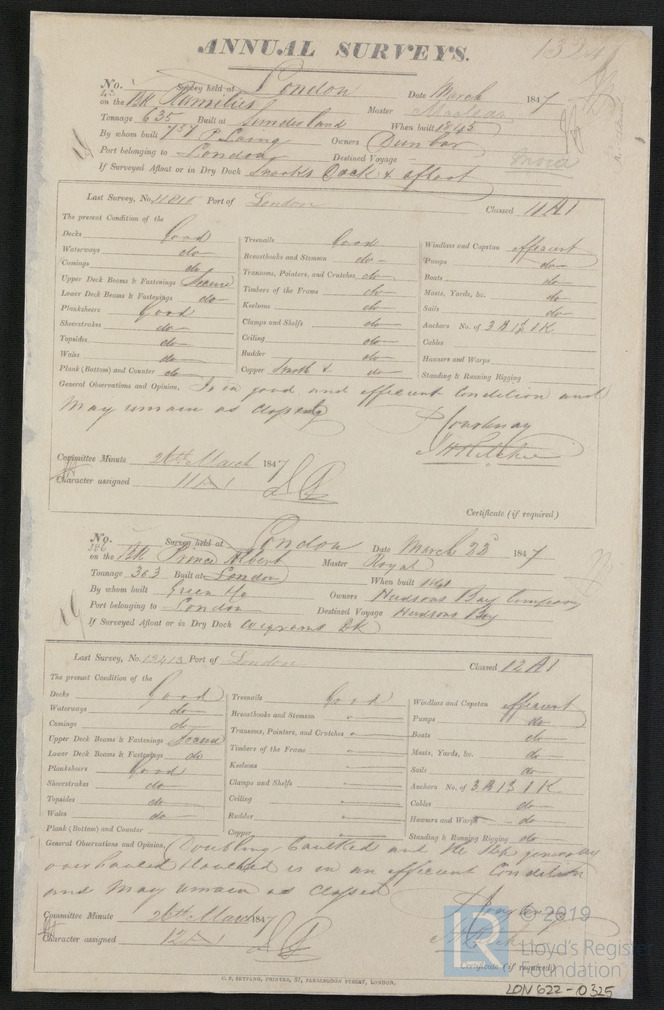 1324
ANNUAL SURVEYS.
No. Survey held at London Date March 1847
on the Bk Ramillies Master Maclean
Tonnage 635 Built at Sunderland When built 1845
757
By whom built P Laing Owners Dunbar
Port belonging to London Destined Voyage India
If Surveyed Afloat or in Dry Dock Snooks Dock & afloat
Last Survey, No. Port of London Classed 11 A1
The present Condition of the
Decks Good Treenails Good Windlass and Capstan efficient
Waterways do Breasthooks and Stemson do Pumps do
Comings do Transoms, Pointers, and Crutches do Boats do
Upper Deck Beams & Fastenings Secure Timbers of the Frame do Masts, Yards, &c. do
Lower Deck Beams & Fastenings do Keelsons do Sails do
Planksheers Good Clamps and Shelfs do Anchors No. of 3 B 1 S 1 K
Sheerstrakes do Ceiling do Cables
Topsides do Rudder do Hawsers and Warps
Wales do Copper Smooth & do Standing & Running Rigging
Plank (Bottom) and Counter do
General Observations and Opinion, Is in good and efficient Condition and
may remain as Classed
P Courtenay
J H Ritchie
Committee Minute 26th March 1847
Character assigned 11 A1
Certificate (if required)
No. Survey held at London Date March 23d 1847
386
on the Bk Prince Albert Master Royal
Tonnage 303 Built at London When built 1841
By whom built Green & Co Owners Hudsons Bay Company
Port belonging to London Destined Voyage Hudsons Bay
If Surveyed Afloat or in Dry Dock Wigrams Dk
Last Survey, No. 13413 Port of London Classed 12 A1
The present Condition of the
Decks Good Treenails Good Windlass and Capstan efficient
Waterways do Breasthooks and Stemson Pumps do
Comings do Transoms, Pointers, and Crutches Boats do
Upper Deck Beams & Fastenings Secure Timbers of the Frame Masts, Yards, &c. do
Lower Deck Beams & Fastenings do Keelsons Sails do
Planksheers Good Clamps and Shelfs Anchors No. of 3 B 1 S 1 K
Sheerstrakes do Ceiling Cables do
Topsides do Rudder Hawsers and Warps do
Wales do Copper Standing & Running Rigging do
Plank (Bottom) and Counter
General Observations and Opinion, Doubling Caulked and the Ship generally
overhauled is in an efficient Condition
and may remain as Classed
P Courtenay
J H Ritchie
Committee Minute 26th March 1847
Character assigned 12 A1
Certificate (if required)
LR © 2019
Lloyd's Register
Foundation
C. F. SEYFANG, PRINTER, 57, FARRINGDON STREET, LONDON.
LON622-0325